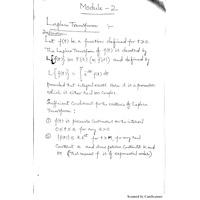 Module - 2
Laplace Transform :-
Definition:
Let f(t) be a function defined for t>0.
The Laplace Transform of f(t) is denoted by
L{f(t)} and defined by
L{f(t)} = ∫ e^-st f(t) dt
Provided that integral exists. Here s is a parameter
which is either real or complex.
Sufficient Conditions for the existence of Laplace
Transform :
① f(t) is piecewise Continuous on the interval
for any
② for any real
Constant and some positive Constants and
M. (This means f is of exponential order)
Scanned by CamScanner